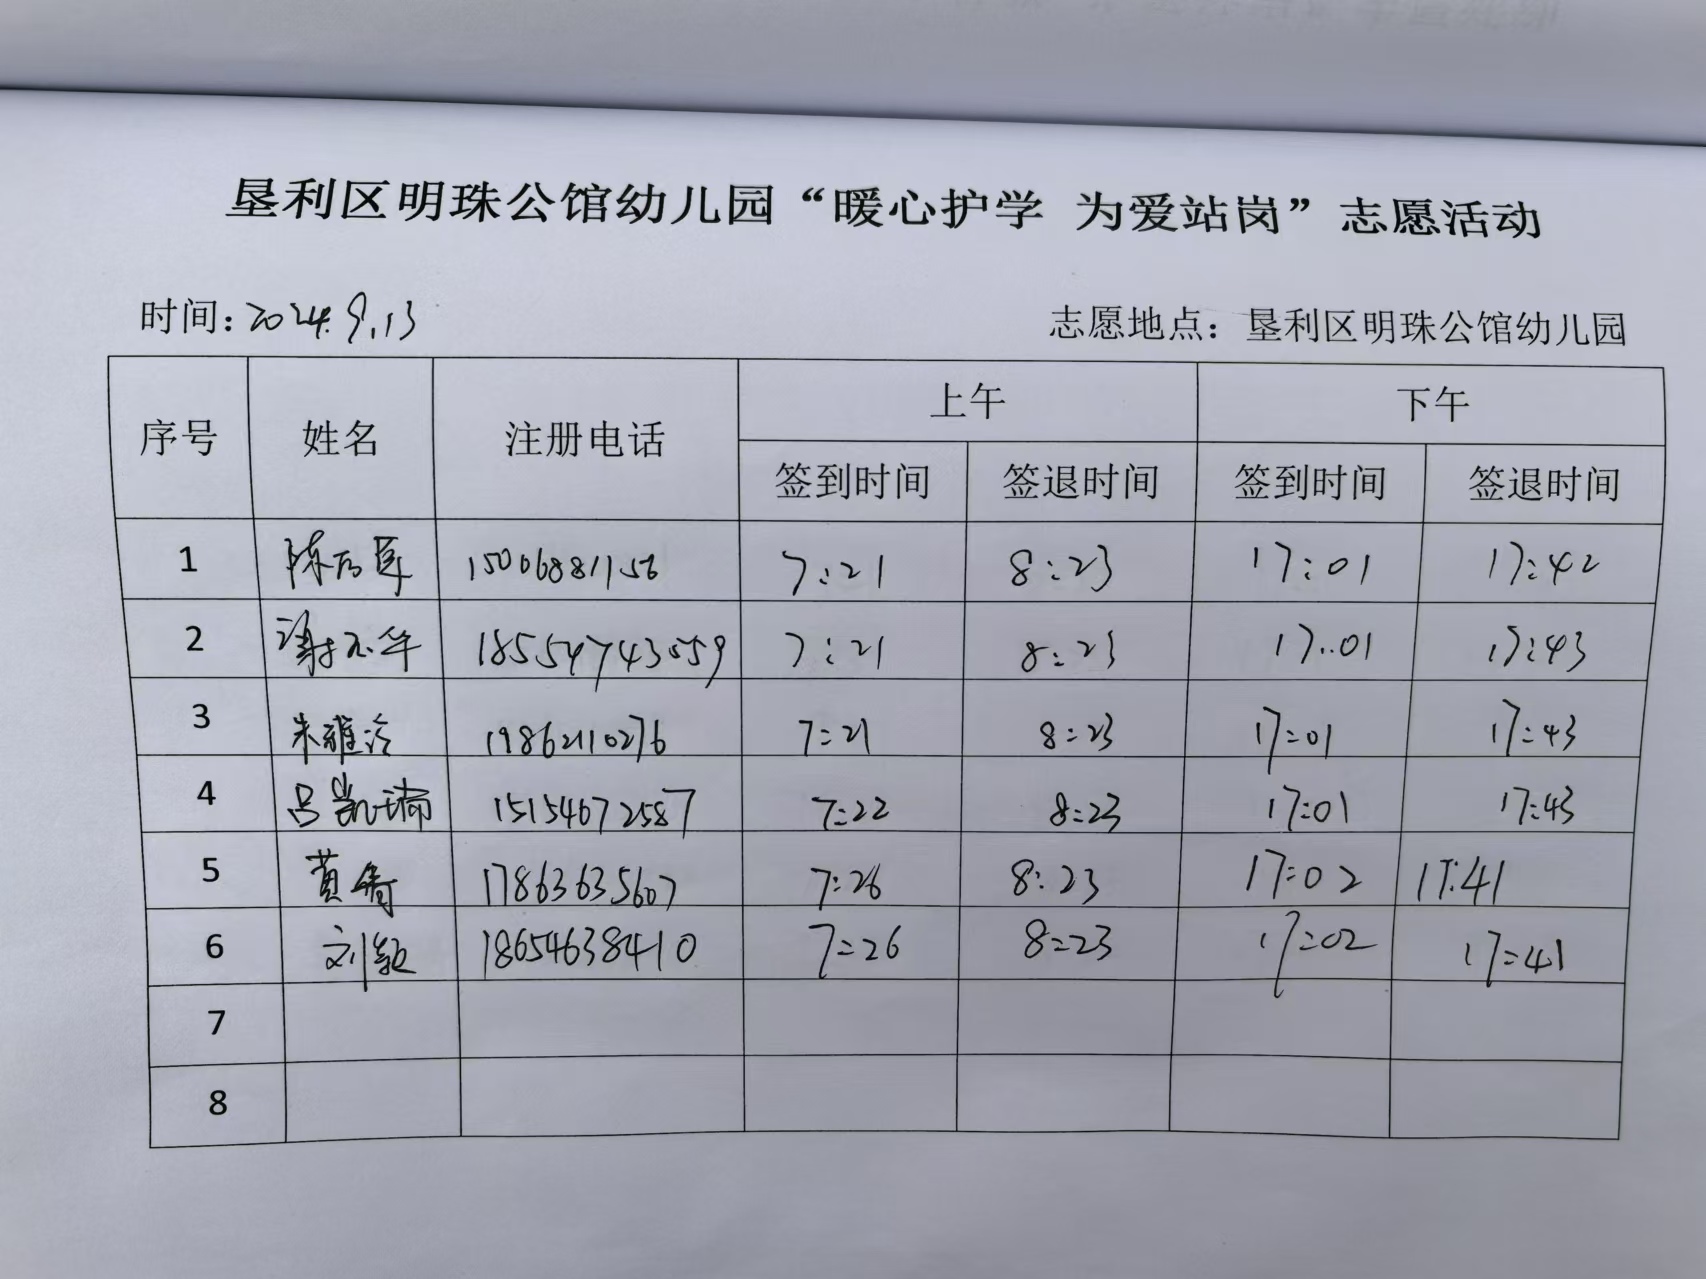 垦利区明珠公馆幼儿园“暖心护学 为爱站岗”志愿活动
时间：2024.9.13 志愿地点：垦利区明珠公馆幼儿园
序号 姓名 注册电话 上午 下午
签到时间 签退时间 签到时间 签退时间
1 15006881156 7:21 8:23 17:01 17:42
2 18554743559 7:21 8:23 17:01 17:43
3 朱雅洽 19862110276 7:21 8:23 17:01 17:43
4 吕凯瑞 15154672587 7:22 8:23 17:01 17:43
5 黄倩 17863635607 7:26 8:23 17:02 17:41
6 刘颖 18654638410 7:26 8:23 17:02 17:41
7
8